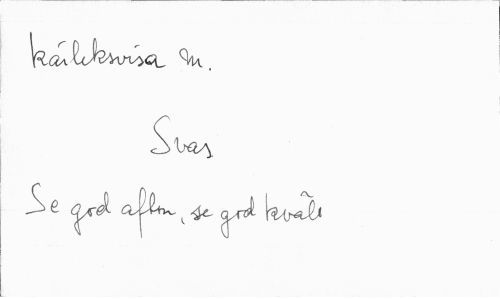 kärleksvisa m.
Svas
Se god afton, se god kväll